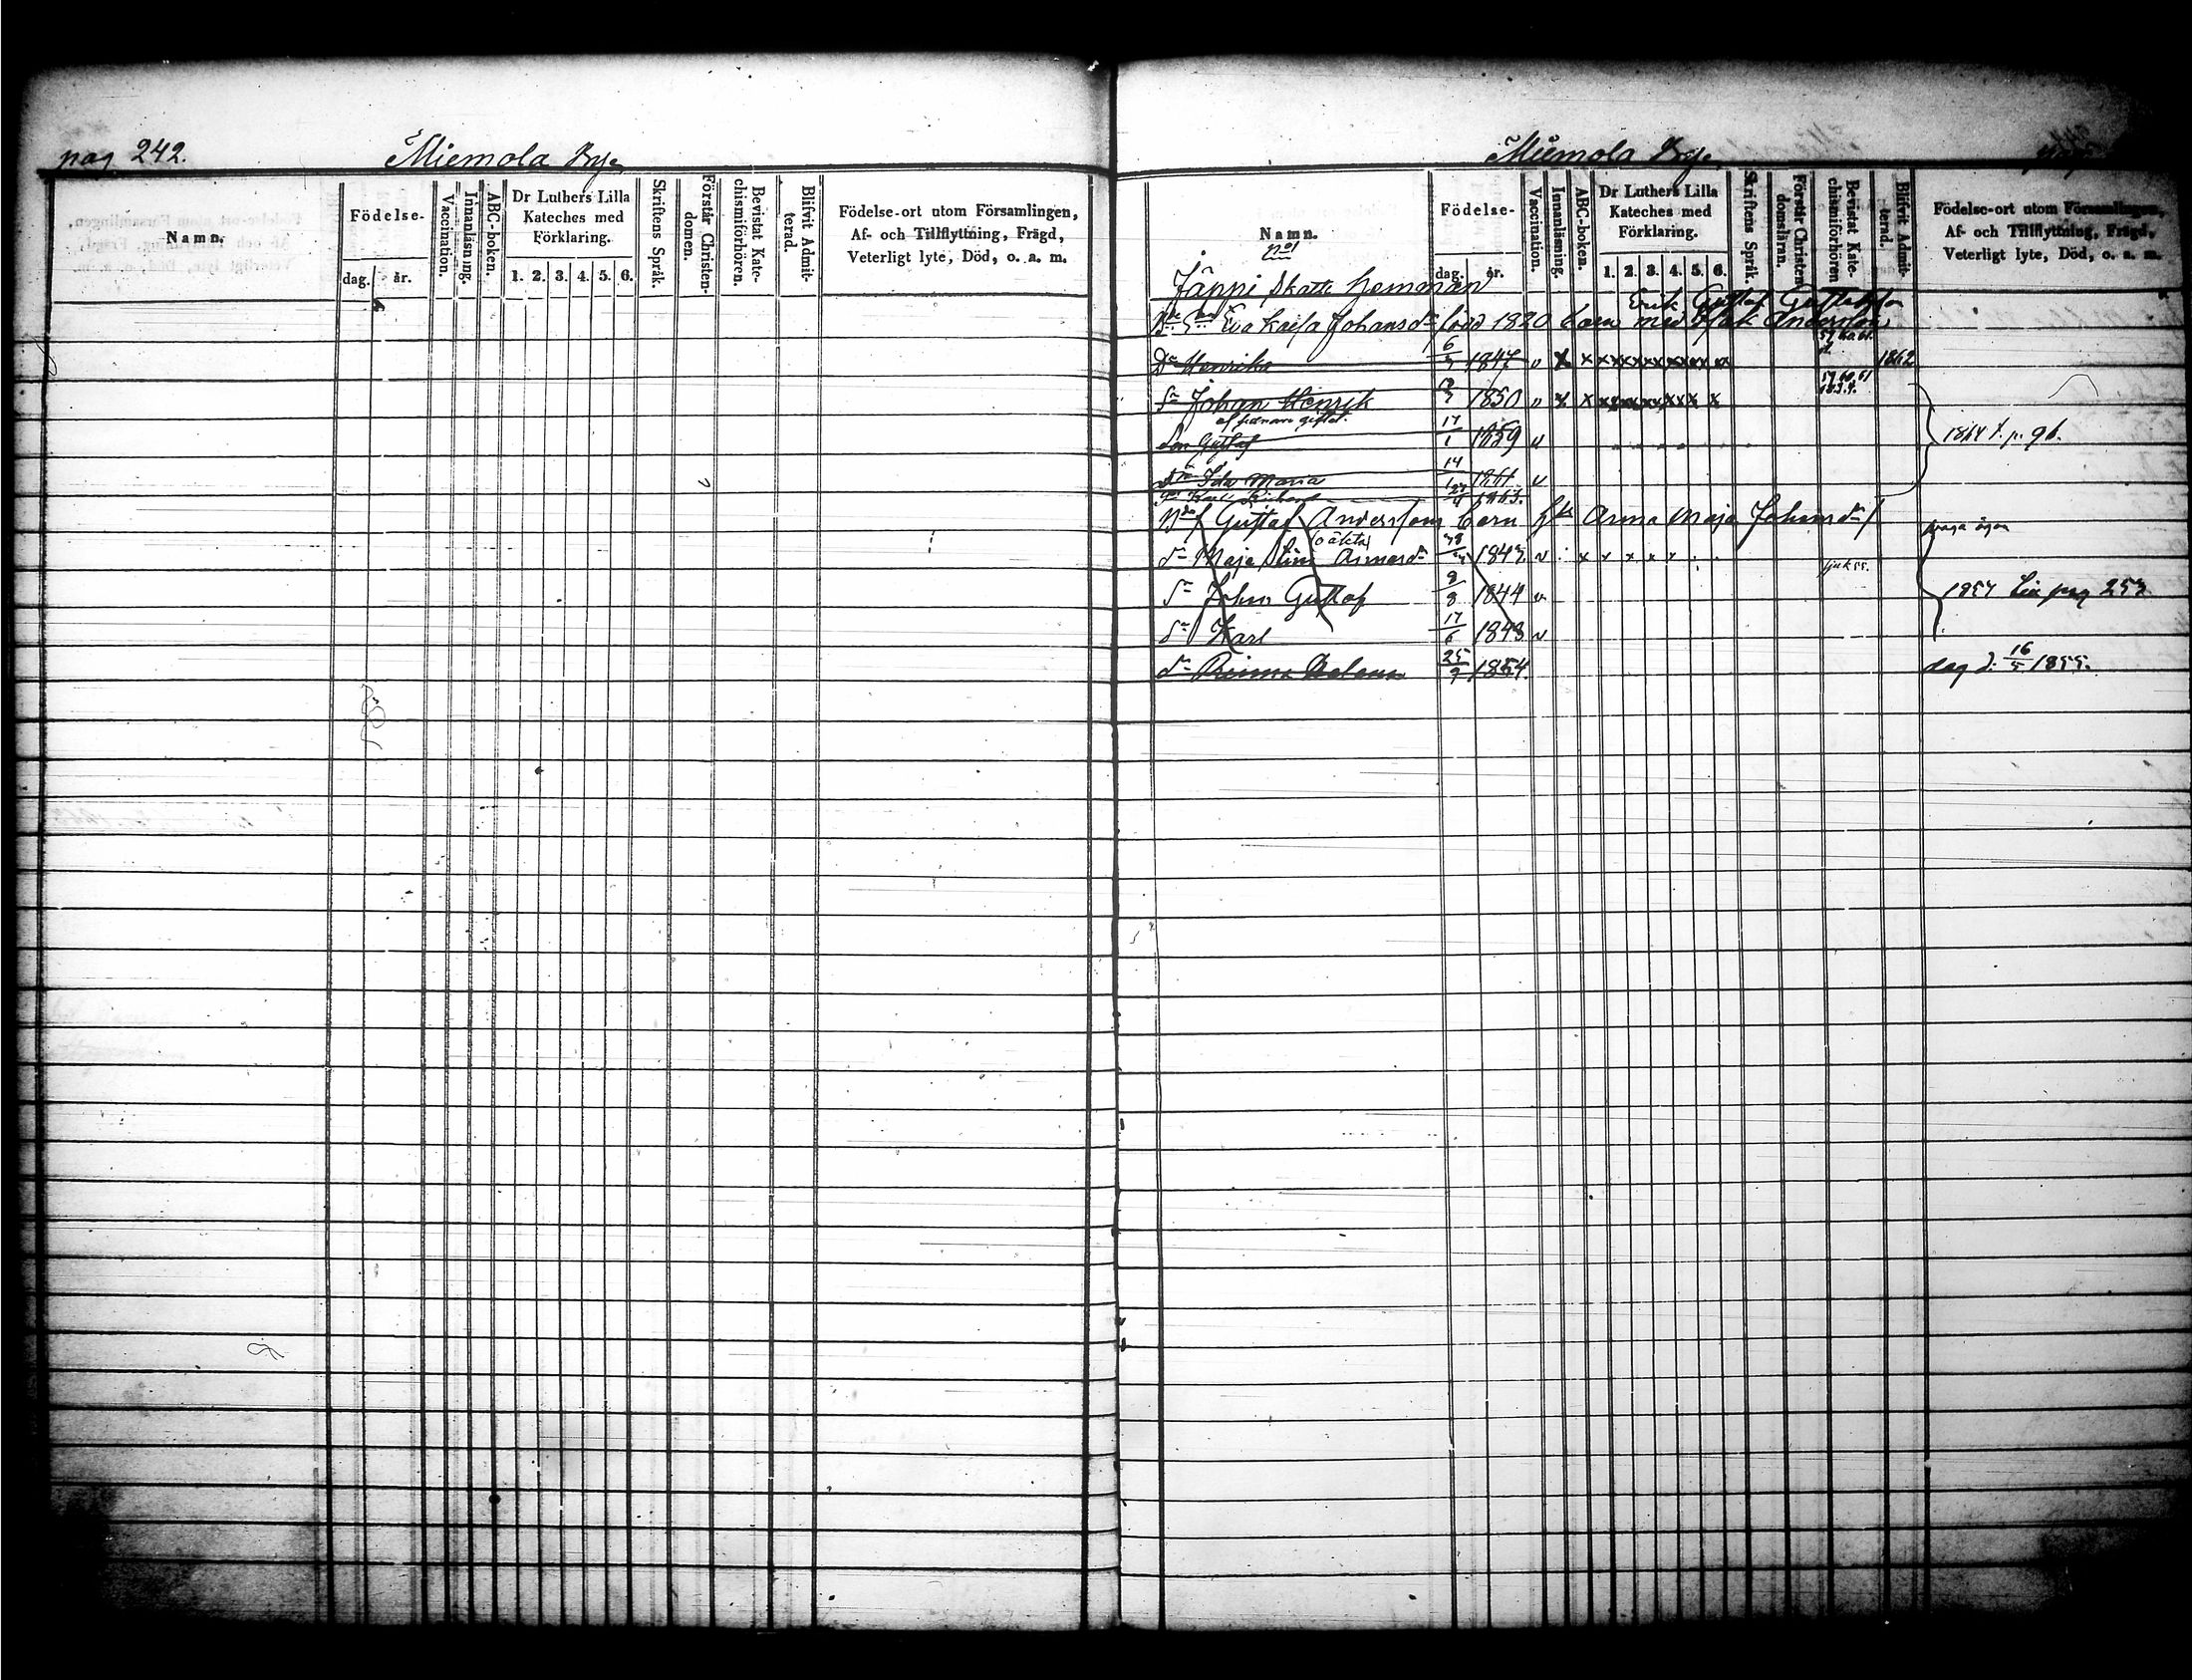 pag 242.
Miemola By
Namn.
Födelse-
dag. år.
Vaccination.
Innanläsning.
ABC-boken.
Dr Luthers Lilla Kateches med Förklaring.
1. 2. 3. 4. 5. 6.
Skriftens Språk.
Förstår Christen-domen.
Bevistat Kate-chismiförhören.
Blifvit Admit-terad.
Födelse-ort utom Församlingen,
Af- och Tillflyttning, Frägd,
Veterligt lyte, Död, o. a. m.
Miemola By
Namn.
Födelse-
dag. år.
Vaccination.
Innanläsning.
ABC-boken.
Dr Luthers Lilla Kateches med Förklaring.
1. 2. 3. 4. 5. 6.
Skriftens Språk.
Förstår Christen-domsläran.
Bevistat Kate-chismiförhören
Blifvit Admit-terad.
Födelse-ort utom Församlingen,
Af- och Tillflyttning, Frägd,
Veterligt lyte, Död, o. a. m.
No 1
Jäppi Skatte Hemman
Erik Gustaf Gustafsson
Eva Kaisa Johansdr född 1820 barn med Isak Andersson
59. 60. 61.
Dr Henrika 6/5 1847 v x x x x x x x x x 1862
59 60 61
Sn Johan Henrik 1850 v x x x x x x x x x
Son Gustaf 17/1 1859 v
1864 t. p. 96.
Dr Ida Maria 14/1 1861 v
Karl Richard 27/4 1863.
Gustaf Anderssons barn Anna Maja Johansdr
svaga ögon
oäkta
dr Maja Lina Annasdr 1843 v
Sn John Gustaf 8/8 1844 v
1857 pag 253
Sn Karl 17/6 1848 v
dr 25/9 1854. d. 16/5 1855.